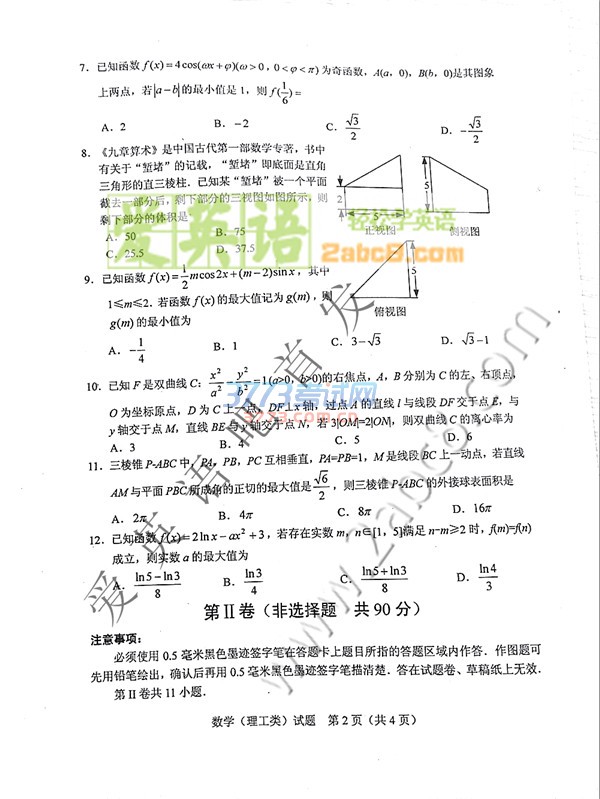 7. 已知函数 f(x)=4cos(ωx+φ)(ω>0,0<φ<π)为奇函数,A(a,0),B(b,0)是其图象
上两点,若|a−b|的最小值是 1,则 f(1/6)=
A. 2 B. −2 C. √3/2 D. −√3/2
8. 《九章算术》是中国古代第一部数学专著,书中
有关于“堑堵”的记载,“堑堵”即底面是直角
三角形的直三棱柱.已知某“堑堵”被一个平面
截去一部分后,剩下部分的三视图如图所示,则
剩下部分的体积是
A. 50 B. 75
C. 25.5 D. 37.5
2
5
5
正视图 侧视图
5
俯视图
9. 已知函数 f(x)=1/2 mcos2x+(m−2)sinx,其中
1≤m≤2.若函数 f(x)的最大值记为 g(m),则
g(m)的最小值为
A. −1/4 B. 1 C. 3−√3 D. √3−1
10. 已知 F 是双曲线 C:x²/a²−y²/b²=1(a>0,b>0)的右焦点,A,B 分别为 C 的左、右顶点.
O 为坐标原点,D 为 C 上一点,DF⊥x 轴.过点 A 的直线 l 与线段 DF 交于点 E,与
y 轴交于点 M,直线 BE 与 y 轴交于点 N,若 3|OM|=2|ON|,则双曲线 C 的离心率为
A. 3 B. 4 C. 5 D. 6
11. 三棱锥 P-ABC 中,PA,PB,PC 互相垂直,PA=PB=1,M 是线段 BC 上一动点,若直线
AM 与平面 PBC 所成角的正切的最大值是 √6/2,则三棱锥 P-ABC 的外接球表面积是
A. 2π B. 4π C. 8π D. 16π
12. 已知函数 f(x)=2lnx−ax²+3,若存在实数 m,n∈[1,5]满足 n−m≥2 时,f(m)=f(n)
成立,则实数 a 的最大值为
A. ln5−ln3/8 B. ln3/4 C. ln5+ln3/8 D. ln4/3
第Ⅱ卷(非选择题 共 90 分)
注意事项:
必须使用 0.5 毫米黑色墨迹签字笔在答题卡上题目所指的答题区域内作答.作图题可
先用铅笔绘出,确认后再用 0.5 毫米黑色墨迹签字笔描清楚.答在试题卷、草稿纸上无效.
第Ⅱ卷共 11 小题.
数学(理工类)试题 第 2 页(共 4 页)
爱英语
轻松学英语
2abcD.com
3773考试网
爱英语吧首发
www.2abcd.com